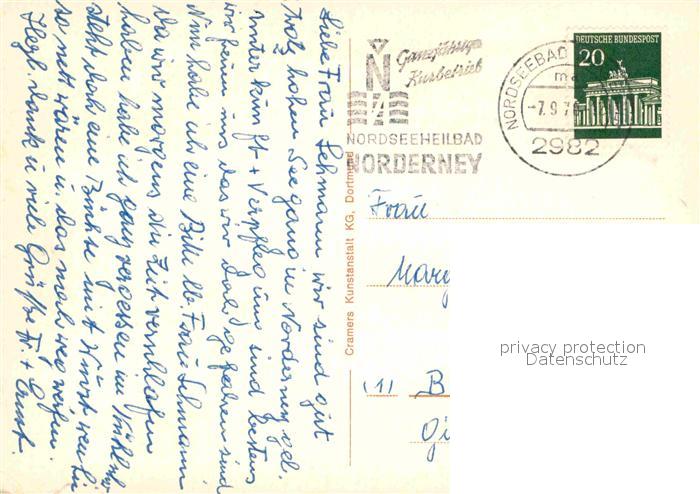 Liebe Frau Lehmann wir sind gut
trotz hohem Seegang in Norderney gel.
Unterkunft + Verpflegung sind bestens
wir freuen uns das wir da gefahren sind
Nun habe ich eine Bitte lb. Frau Lehmann
Da wir morgens die Zeit verschlafen
haben habe ich ganz vergessen im Kühlschr
steht doch eine Büchse mit Wurst wen Sie
so nett wären u. das mal weg werfen.
Hzgl. Dank u. viele Grüße Fr. + Ernst.
Cramers Kunstanstalt KG, Dortmund
Ganzjähriger
Kurbetrieb
N
NORDSEEHEILBAD
NORDERNEY
NORDSEEBAD
-7.9.7
2982
DEUTSCHE BUNDESPOST
20
Frau
Marg
(1) B
privacy protection
Datenschutz